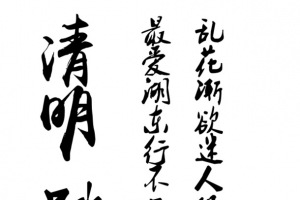 乱花渐欲迷人
最爱湖东行不
清明